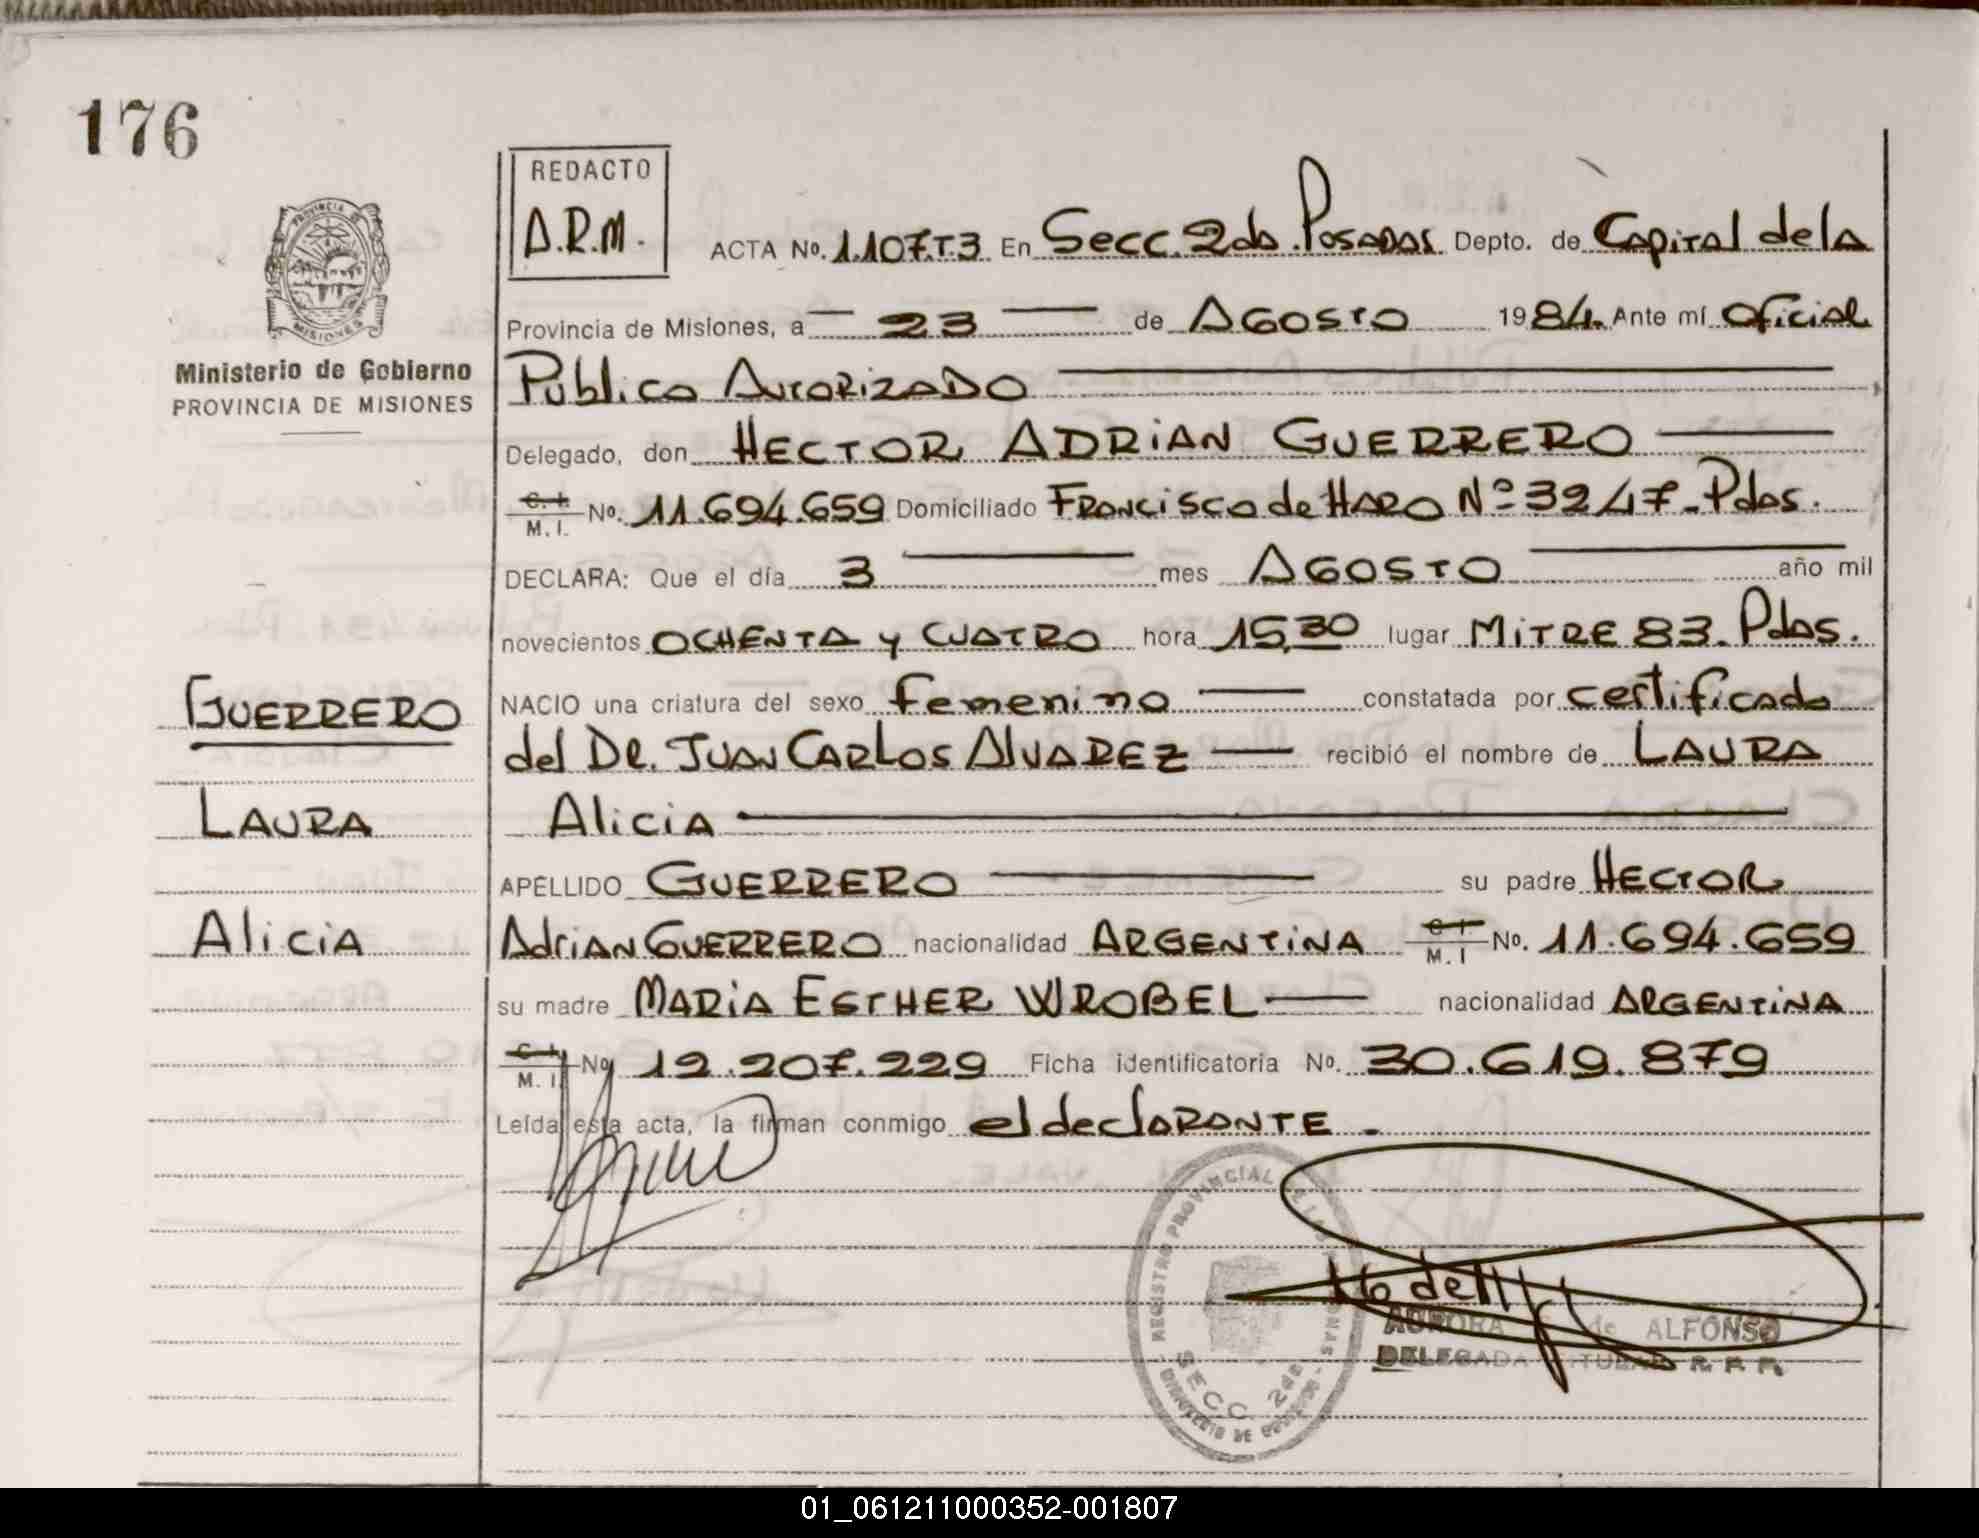 176
REDACTO
D.R.M.
PROVINCIA DE
MISIONES
Ministerio de Gobierno
PROVINCIA DE MISIONES
ACTA No. 1.107.T.3 En Secc. 2da. Posadas Depto. de Capital de la
Provincia de Misiones, a — 23 — de Agosto 1984. Ante mí Oficial
Publico Autorizado
Delegado, don HECTOR ADRIAN GUERRERO
C. I. / M. I. No. 11.694.659 Domiciliado Francisco de Haro Nº 3247 - Pdas.
DECLARA: Que el día 3 mes AGOSTO año mil
novecientos OCHENTA y CUATRO hora 15,30 lugar MITRE 83. Pdas.
NACIO una criatura del sexo Femenino constatada por certificado
del DR. JUAN CARLOS ALVAREZ recibió el nombre de LAURA
Alicia
APELLIDO GUERRERO su padre HECTOR
Adrian GUERRERO nacionalidad ARGENTINA C. I. / M. I No. 11.694.659
su madre MARIA ESTHER WROBEL nacionalidad ARGENTINA
C. I. / M. I. No 12.207.229 Ficha identificatoria No. 30.619.879
Leída esta acta, la firman conmigo el declarante.
GUERRERO
LAURA
Alicia
REGISTRO PROVINCIAL DE LAS PERSONAS
SECC 2da
MINISTERIO DE GOBIERNO
AURORA de ALFONSO
DELEGADA TITULAR R. P. P.
01_061211000352-001807